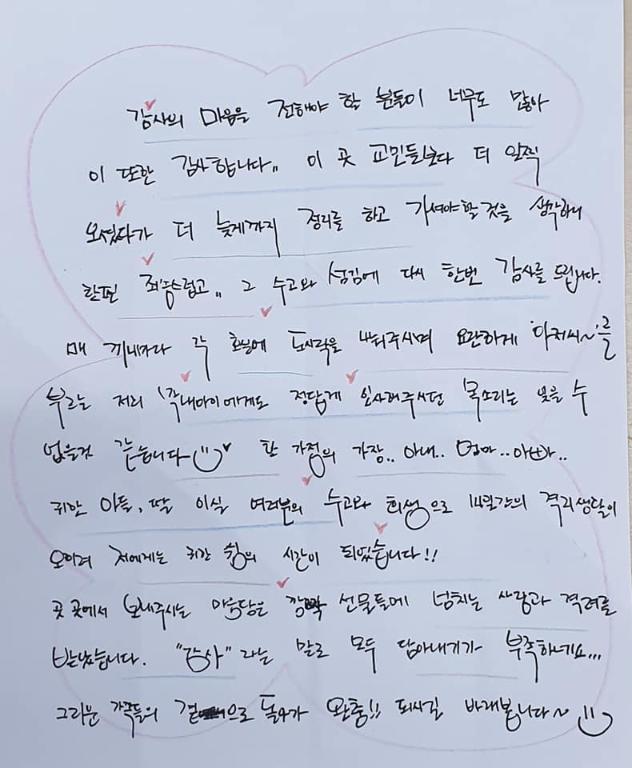 감사의 마음을 전해야 할 분들이 너무도 많아
이 또한 감사합니다,, 이 곳 교민들보다 더 일찍
오셨다가 더 늦게까지 정리를 하고 가셔야할 것을 생각하니
한편 죄송스럽고,, 그 수고와 섬김에 다시 한번 감사를 드립니다.
매 끼니마다 각 호실에 도시락을 나눠주시며 요란하게 '아저씨~'를
부르는 저희 꼬마에게도 정답게 인사해주시던 목소리는 잊을 수
없을것 같습니다 한 가정의 가장.. 아내.. 엄마.. 아빠..
귀한 아들, 딸 이실 여러분의 수고와 희생으로 14일간의 격리생활이
오히려 저에게는 귀한 쉼의 시간이 되었습니다!!
곳 곳에서 보내주시는 마음담은 선물들에 넘치는 사랑과 격려를
받았습니다. "감사" 라는 말로 모두 담아내기가 부족하네요...
그리운 가족들의 곁으로 모두가 완쾌!! 되시길 바래봅니다~